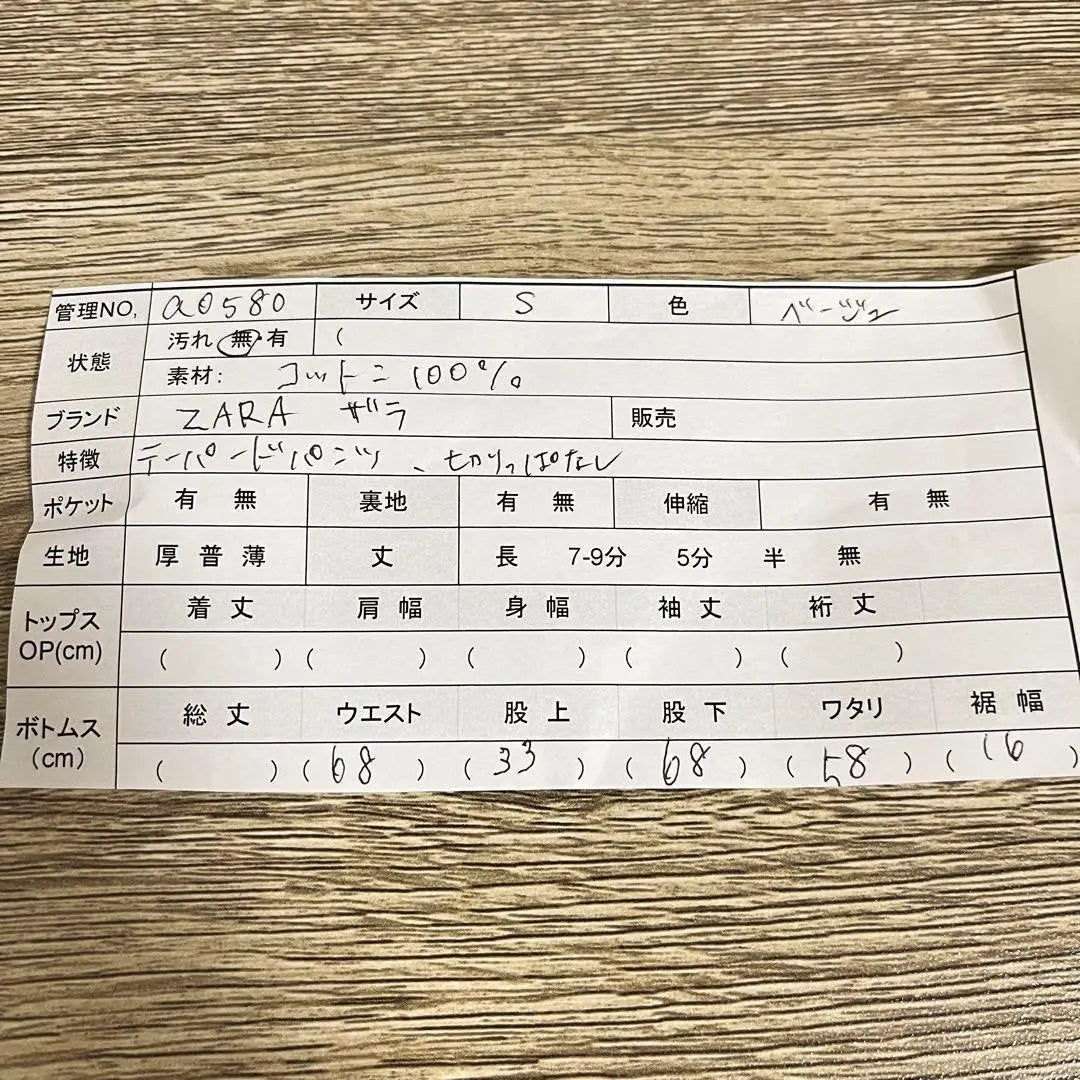 管理NO, a0580 サイズ S 色 ベージュ
状態 汚れ 無・有 (
素材: コットン 100%
ブランド ZARA ザラ 販売
特徴 テーパードパンツ、切りっぱなし
ポケット 有 無 裏地 有 無 伸縮 有 無
生地 厚 普 薄 丈 長 7-9分 5分 半 無
トップス OP(cm) 着丈 肩幅 身幅 袖丈 裄丈
( ) ( ) ( ) ( ) ( )
ボトムス (cm) 総丈 ウエスト 股上 股下 ワタリ 裾幅
( ) ( 68 ) ( 33 ) ( 68 ) ( 58 ) ( 16 )